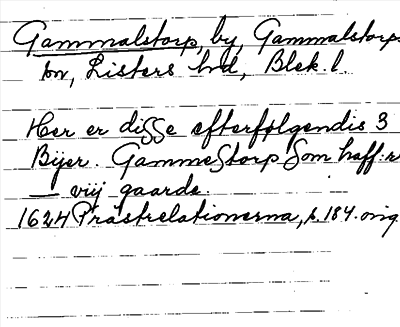 Gammalstorp, by, Gammalstorps
sn, Listers hd, Blek. l.
Her er disse efterfølgendis 3
Bijer. Gammestorp Som haff:r
— vij gaarde.
1624 Prästrelationerna, s. 184. orig.